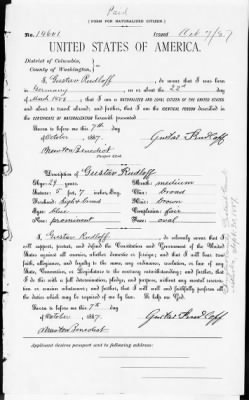 Paid
[FORM FOR NATURALIZED CITIZEN.]
No. 14601 Issued Oct 7/87
UNITED STATES OF AMERICA.
District of Columbia,
County of Washington,
I, Gustav Rudloff, do swear that I was born
in Germany, on or about the 22nd day
of March 1858, that I am a NATURALIZED AND LOYAL CITIZEN OF THE UNITED STATES
and about to travel abroad; and further, that I am the IDENTICAL PERSON described in
the CERTIFICATE OF NATURALIZATION herewith presented.
Sworn to before me this 7th day
of October, 1887. Gustav Rudloff
Newton Benedict
Description of Gustav Rudloff
Age: 29 years. Mouth: medium
Stature: 5 feet, 7 inches, Eng. Chin: round
Forehead: high & broad Hair: brown
Eyes: blue Complexion: fair
Nose: prominent Face: oval
I, Gustav Rudloff, do solemnly swear that I
will support, protect, and defend the Constitution and Government of the United
States against all enemies, whether domestic or foreign; and that I will bear true
faith, allegiance, and loyalty to the same, any ordinance, resolution, or law of any
State, Convention, or Legislature to the contrary notwithstanding; and further, that
I do this with a full determination, pledge, and purpose, without any mental reserva-
tion or evasion whatsoever; and further, that I will well and faithfully perform all
the duties which may be required of me by law. So help me God.
Sworn to before me this 7th day
of October, 1887. Gustav Rudloff
Newton Benedict
Applicant desires passport sent to following address: